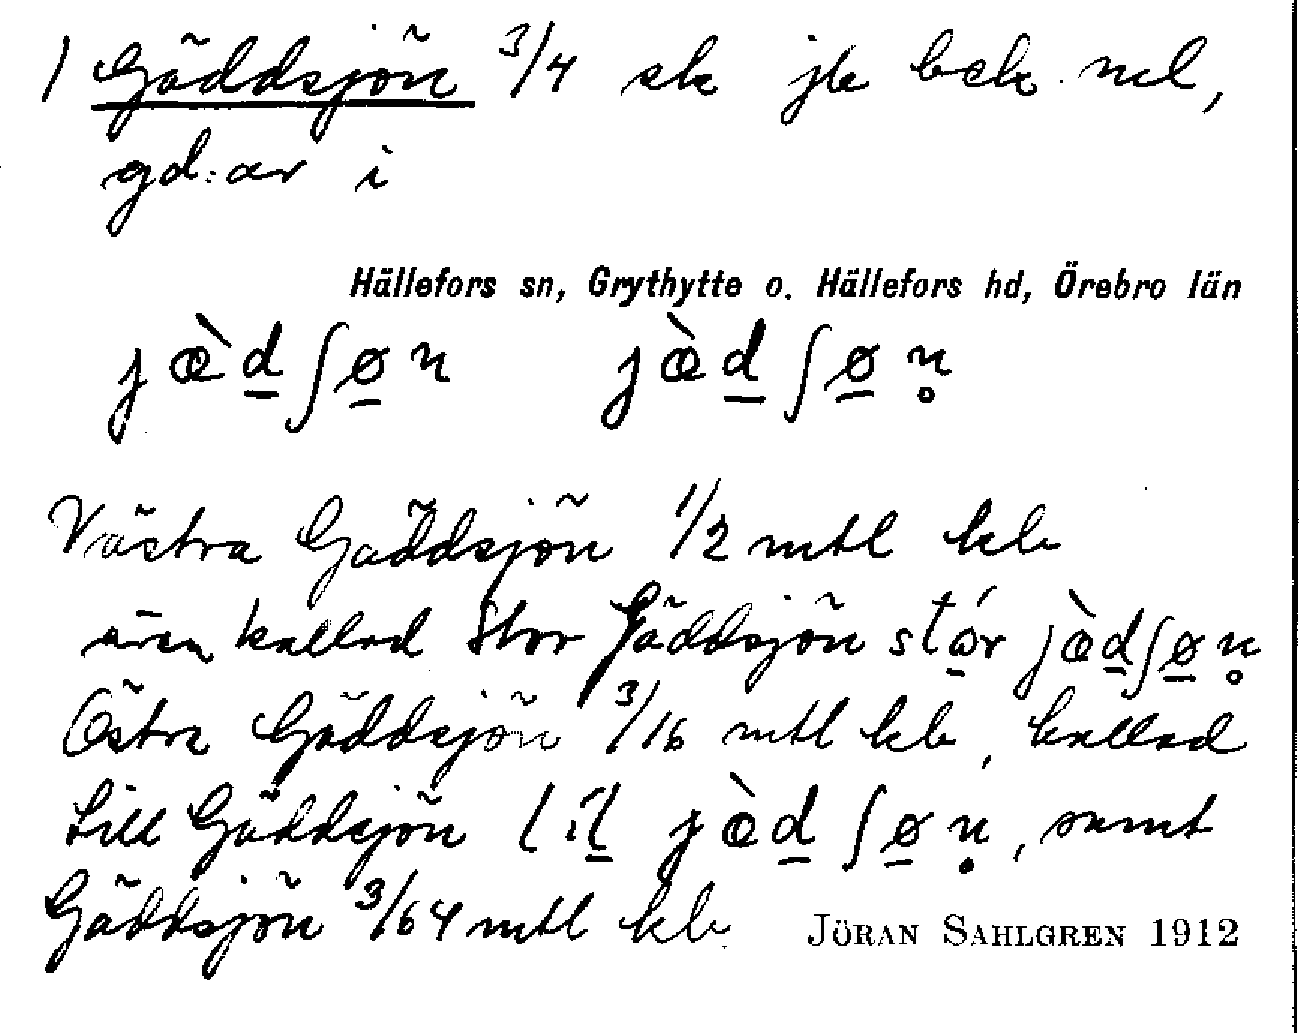 1) Gäddsjön 3/4 sk jb bek. ml,
gd:ar i
Hällefors sn, Grythytte o. Hällefors hd, Örebro län
jæ̀d̲ʃø̲n jæ̀d̲ʃø̲n̥
Västra Gäddsjön 1/2 mtl kb
även kallad Stor Gäddsjön stó̲r jæ̀d̲ʃø̲n̥
Östra Gäddsjön 3/16 mtl kb, kallad
Lill Gäddsjön líl̲ jæ̀d̲ʃø̲ṇ, samt
Gäddsjön 3/64 mtl kb JÖRAN SAHLGREN 1912